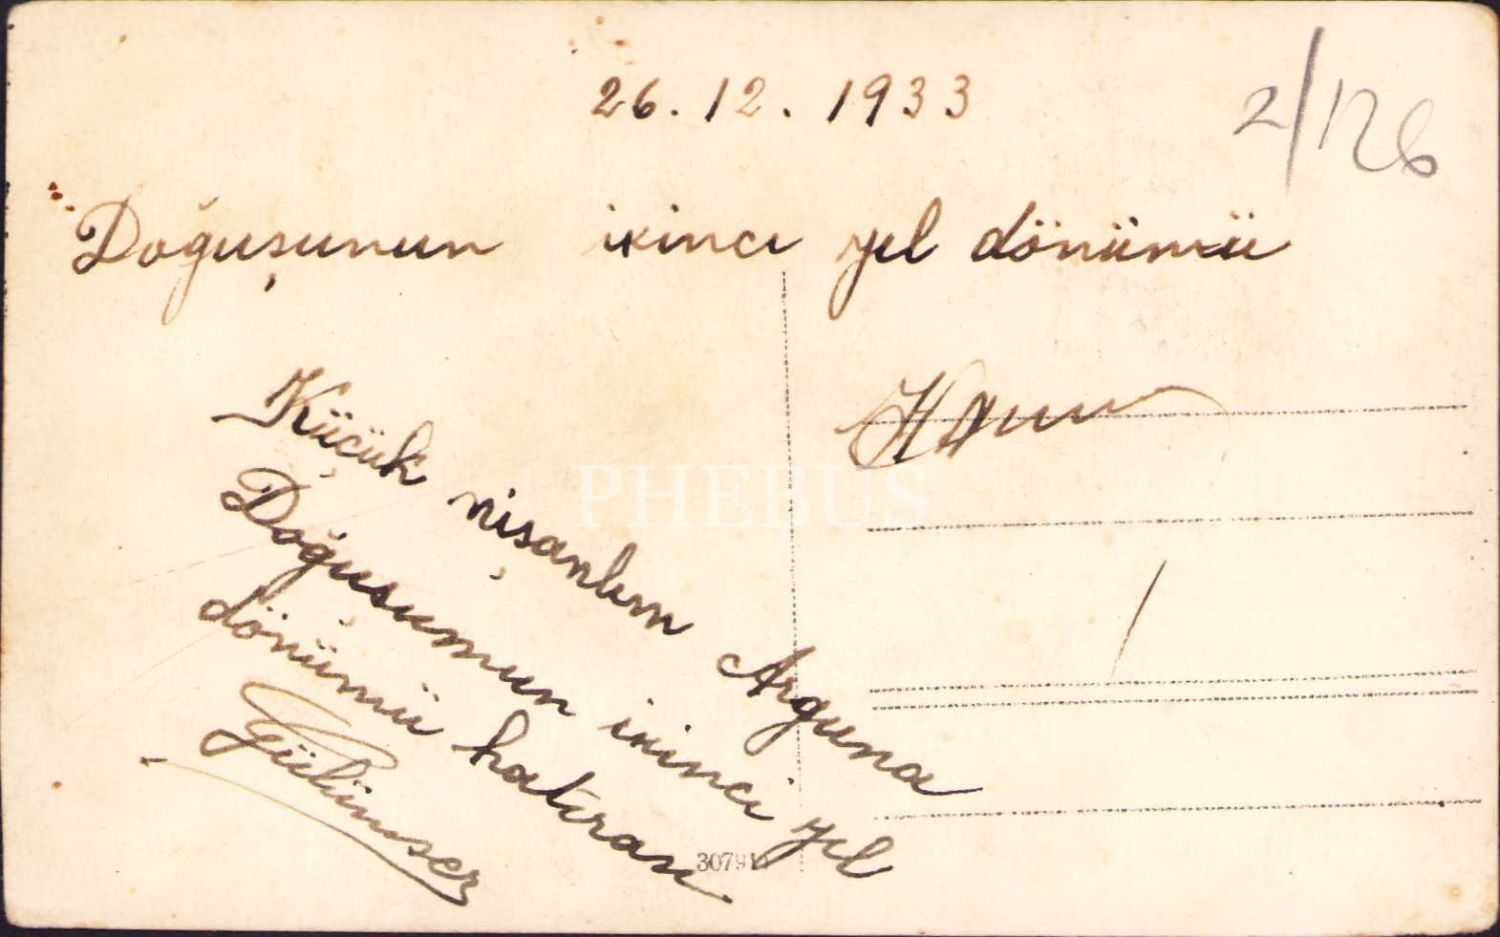 26.12.1933
2/126
Doğuşunun ikinci yıl dönümü
Küçük nişanlım Arguna
Doğuşumun ikinci yıl
dönümü hatırası
Gülümser
PHEBUS